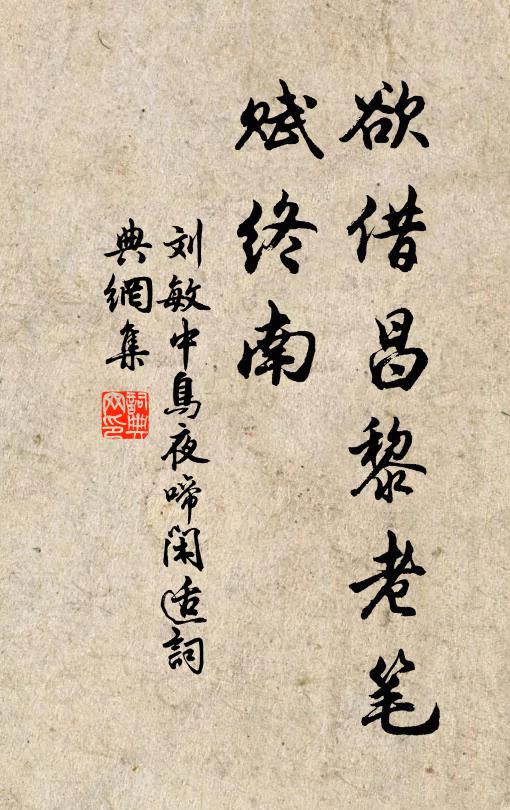 欲借昌黎老笔
赋终南
刘敏中鳥夜啼闲适詞
典網集
詞典
网印